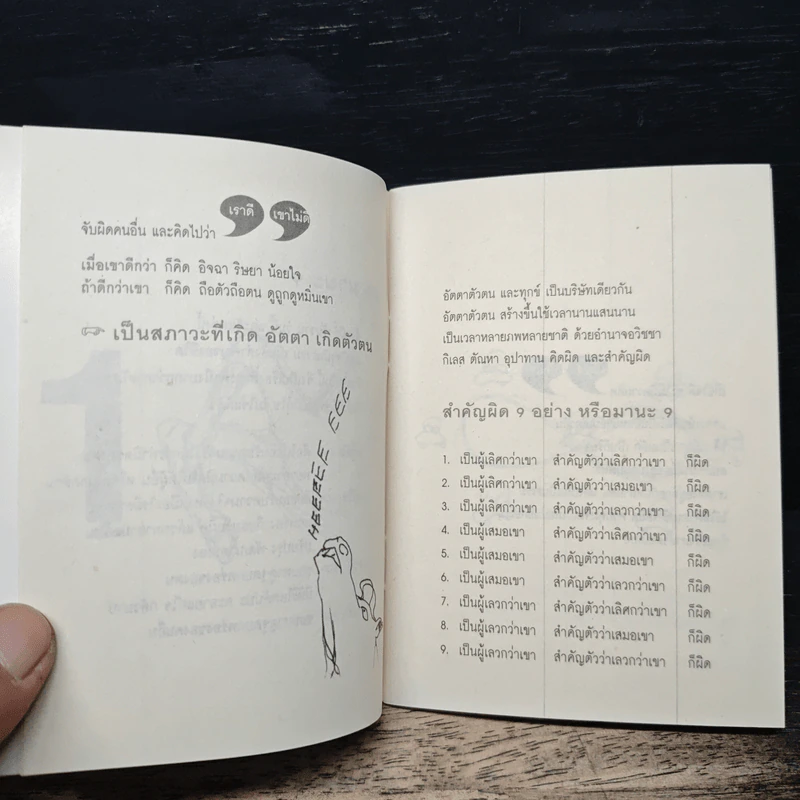 เราดี เขาไม่ดี
จับผิดคนอื่น และคิดไปว่า
เมื่อเขาดีกว่า ก็คิด อิจฉา ริษยา น้อยใจ
ถ้าดีกว่าเขา ก็คิด ถือตัวถือตน ดูถูกดูหมิ่นเขา
เป็นสภาวะที่เกิด อัตตา เกิดตัวตน
อัตตาตัวตน และทุกข์ เป็นบริษัทเดียวกัน
อัตตาตัวตน สร้างขึ้นใช้เวลานานแสนนาน
เป็นเวลาหลายภพหลายชาติ ด้วยอำนาจอวิชชา
กิเลส ตัณหา อุปาทาน คิดผิด และสำคัญผิด
สำคัญผิด ๙ อย่าง หรือมานะ ๙
1. เป็นผู้เลิศกว่าเขา สำคัญตัวว่าเลิศกว่าเขา ก็ผิด
2. เป็นผู้เลิศกว่าเขา สำคัญตัวว่าเสมอเขา ก็ผิด
3. เป็นผู้เลิศกว่าเขา สำคัญตัวว่าเลวกว่าเขา ก็ผิด
4. เป็นผู้เสมอเขา สำคัญตัวว่าเลิศกว่าเขา ก็ผิด
5. เป็นผู้เสมอเขา สำคัญตัวว่าเสมอเขา ก็ผิด
6. เป็นผู้เสมอเขา สำคัญตัวว่าเลวกว่าเขา ก็ผิด
7. เป็นผู้เลวกว่าเขา สำคัญตัวว่าเลิศกว่าเขา ก็ผิด
8. เป็นผู้เลวกว่าเขา สำคัญตัวว่าเสมอเขา ก็ผิด
9. เป็นผู้เลวกว่าเขา สำคัญตัวว่าเลวกว่าเขา ก็ผิด